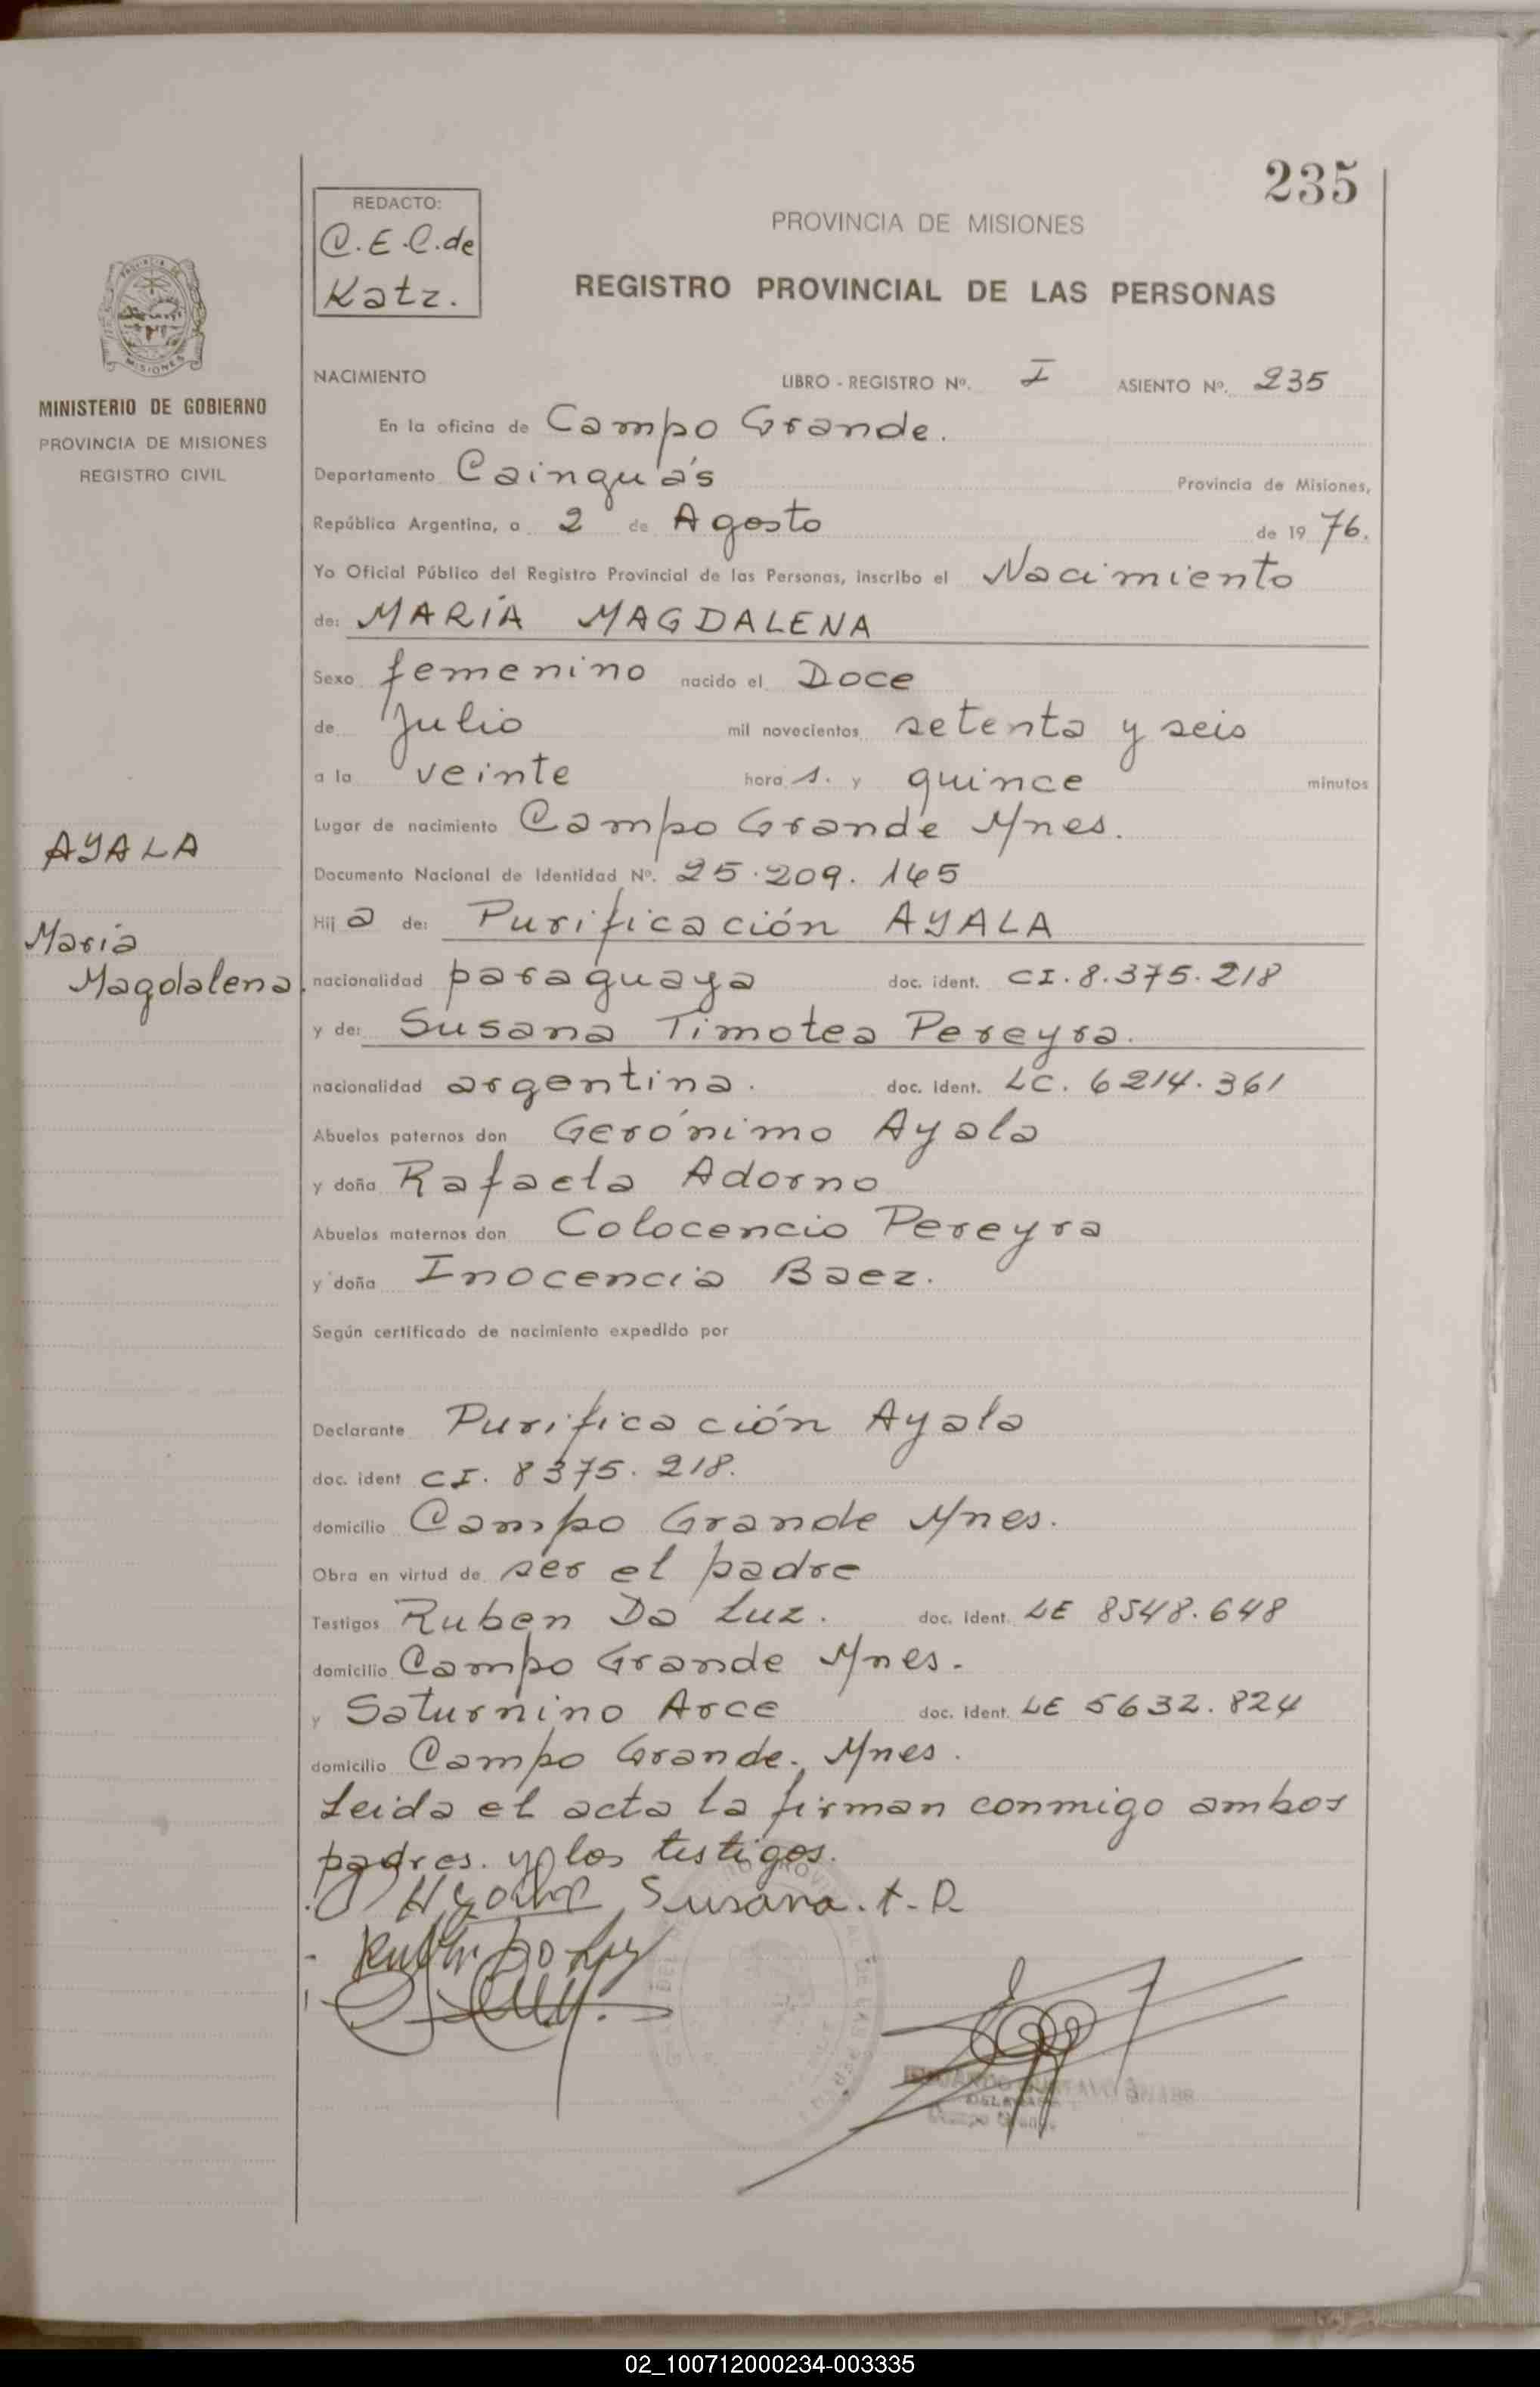 235
REDACTO:
C.E.C. de
Katz.
PROVINCIA DE MISIONES
REGISTRO PROVINCIAL DE LAS PERSONAS
MISIONES
MINISTERIO DE GOBIERNO
PROVINCIA DE MISIONES
REGISTRO CIVIL
NACIMIENTO LIBRO - REGISTRO Nº. I ASIENTO Nº. 235
En la oficina de Campo Grande.
Departamento Cainguás Provincia de Misiones,
República Argentina, a 2 de Agosto de 1976.
Yo Oficial Público del Registro Provincial de las Personas, inscribo el Nacimiento
de: MARÍA MAGDALENA
Sexo femenino nacido el Doce
de Julio mil novecientos setenta y seis
a la veinte hora s. y quince minutos
Lugar de nacimiento Campo Grande Mnes.
AYALA
Documento Nacional de Identidad Nº. 25.209.145
Hij a de: Purificación AYALA
María
Magdalena.
nacionalidad paraguaya doc. ident. CI. 8.375.218
y de: Susana Timotea Pereyra.
nacionalidad argentina. doc. ident. LC. 6214.361
Abuelos paternos don Gerónimo Ayala
y doña Rafaela Adorno
Abuelos maternos don Colocencio Pereyra
y doña Inocencia Baez.
Según certificado de nacimiento expedido por
Declarante Purificación Ayala
doc. ident CI. 8375.218.
domicilio Campo Grande Mnes.
Obra en virtud de ser el padre
Testigos Ruben Da Luz. doc. ident. LE 8548.648
domicilio Campo Grande Mnes.
y Saturnino Arce doc. ident. LE 5632.824
domicilio Campo Grande. Mnes.
Leida el acta la firman conmigo ambos
padres. y los testigos.
Susana. t. P.
02_100712000234-003335